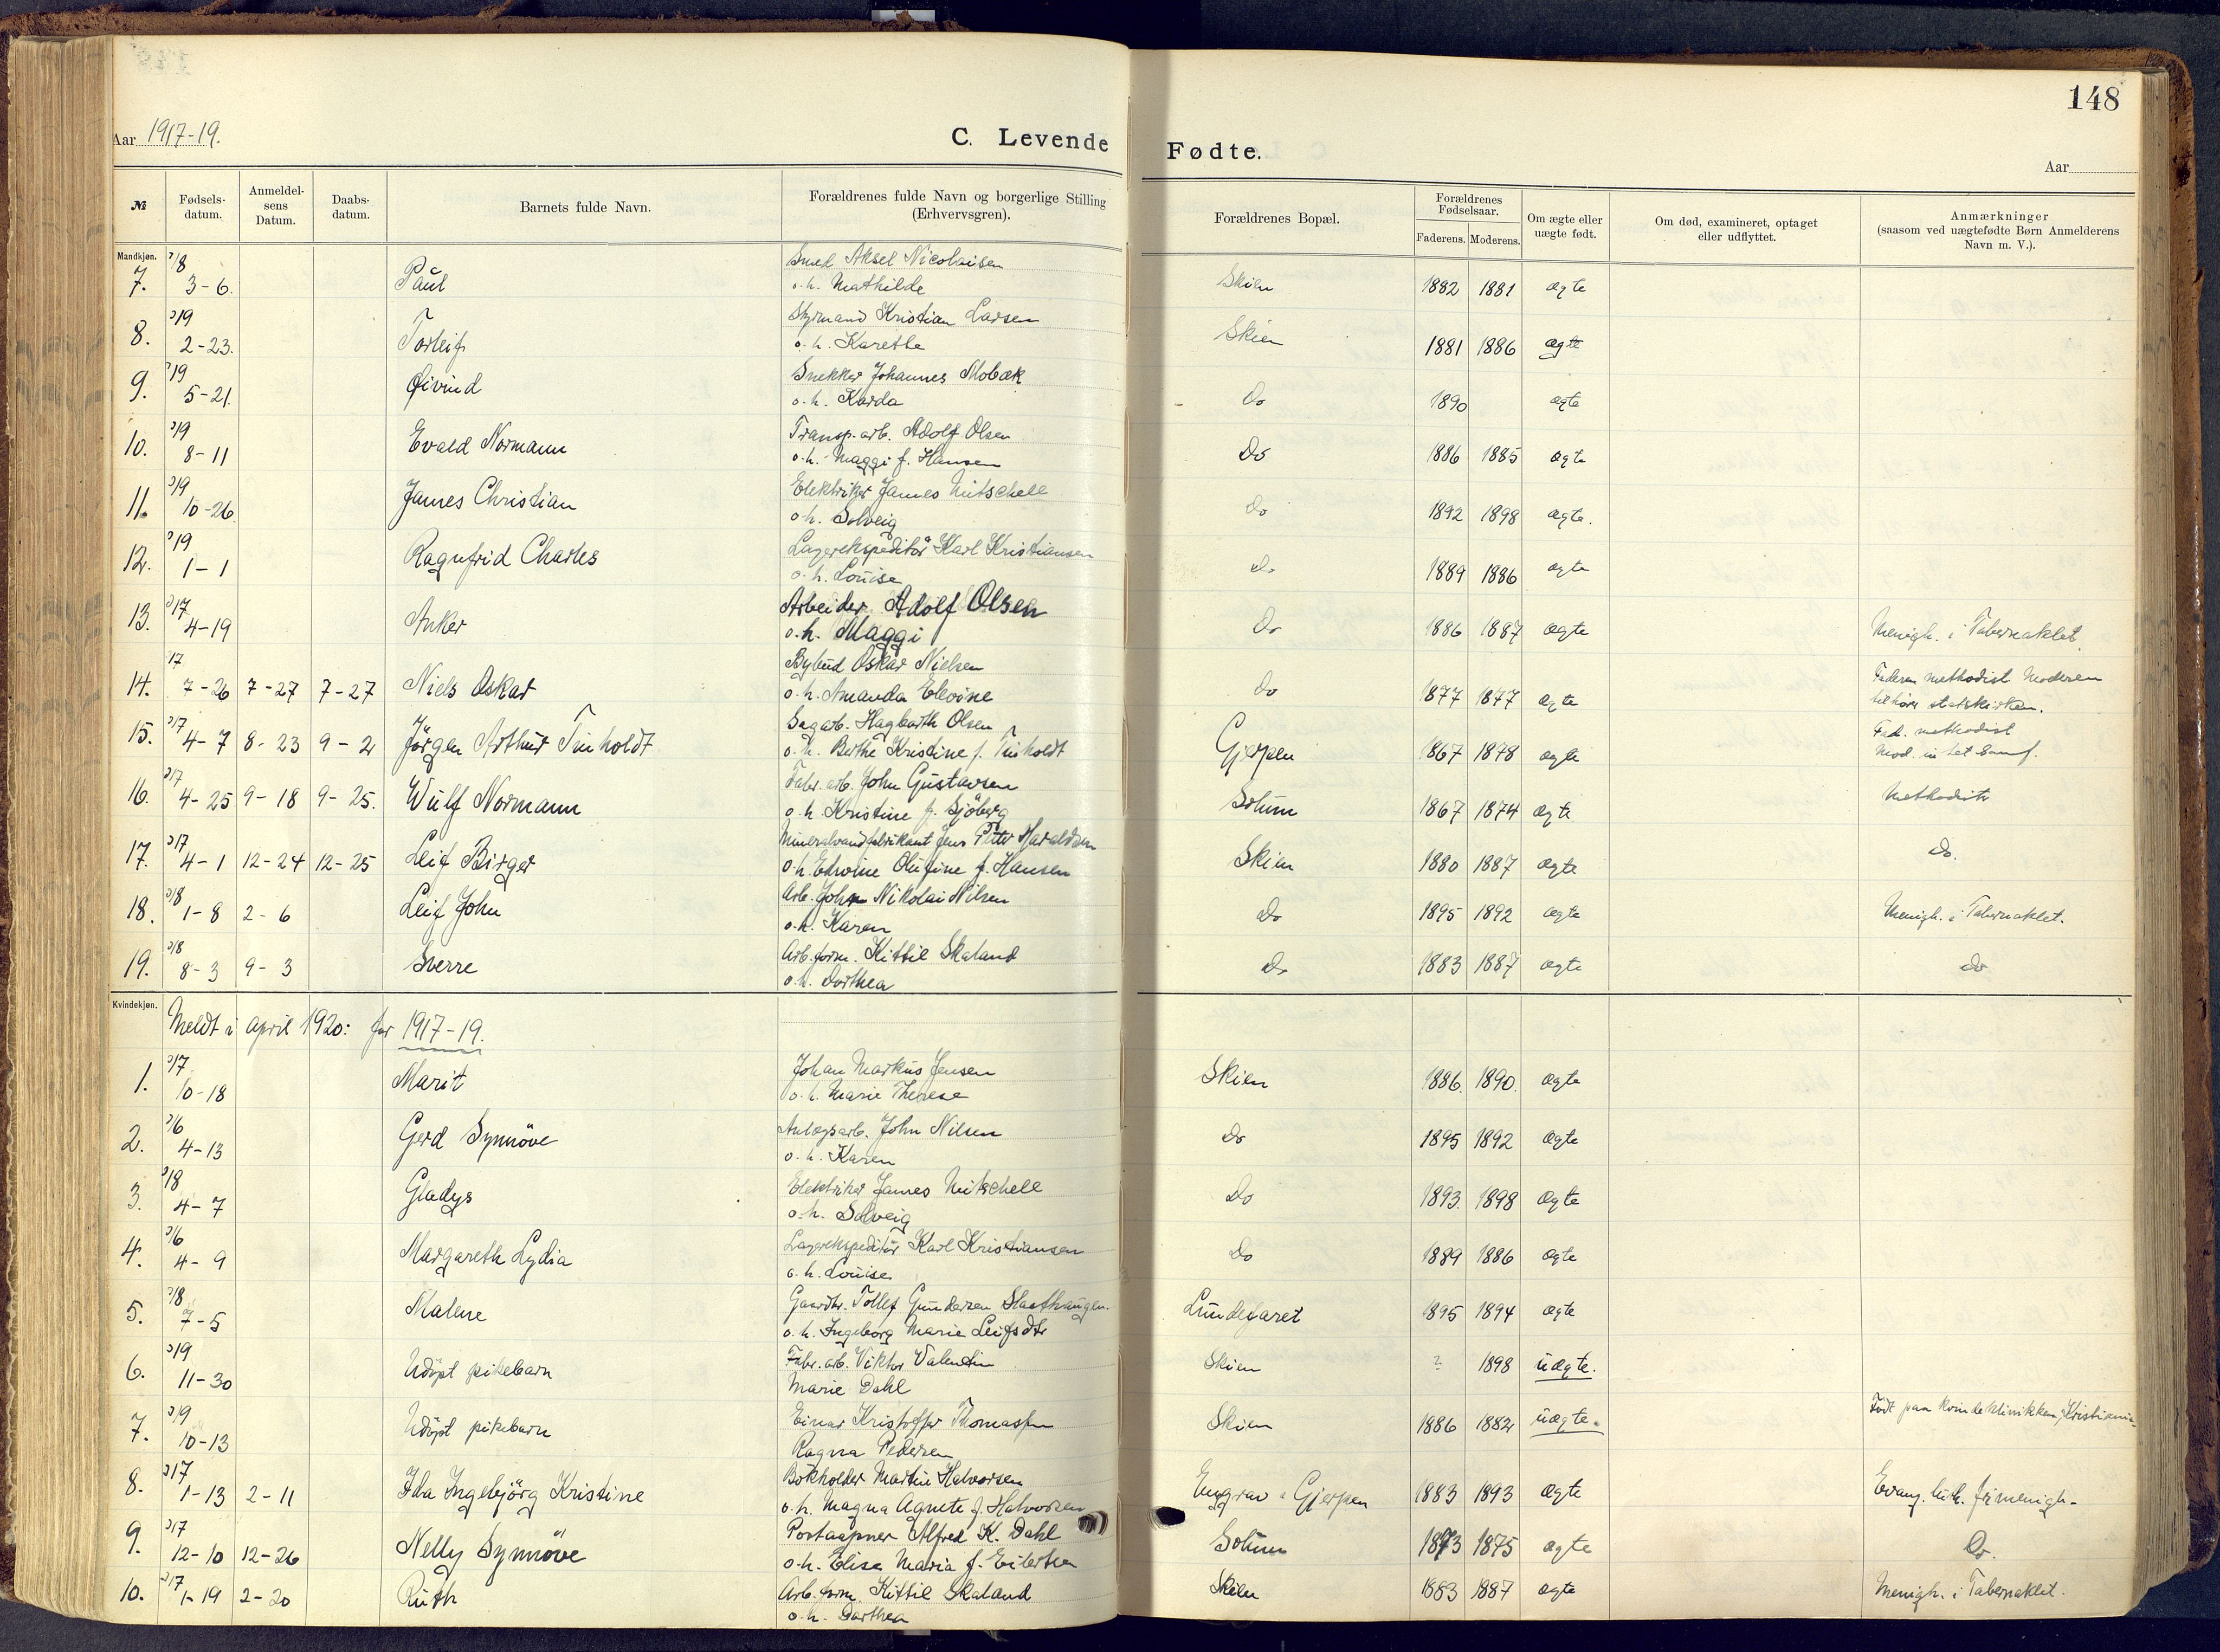 148
Aar 1917-19.
C. Levende Fødte.
Aar
№
Fødsels-datum.
Anmeldel-sens Datum.
Daabs-datum.
Barnets fulde Navn.
Forældrenes fulde Navn og borgerlige Stilling (Erhvervsgren).
Forældrenes Bopæl.
Forældrenes Fødselsaar.
Faderens. Moderens.
Om ægte eller uægte født.
Om død, examineret, optaget eller udflyttet.
Anmærkninger (saasom ved uægtefødte Børn Anmelderens Navn m. V.).
Mandkjøn.
7. 3-6. Paul Smed Aksel Nicolaisen Skien 1882 1881 ægte
o. h. Mathilde
8. 2-23. Torleif Styrmand Kristian Larsen Skien 1881 1886 ægte
o. h. Karethe
9. 5-21 Øivind Snekker Johannes Mobæk Do 1890 ægte
o. h. Karda
10. 8-11 Evald Normann Transp. arb. Adolf Olsen Do 1886 1885 ægte
o. h. Maggi f. Hansen
11. 10-26 James Christian Elektriker James Mitschell Do 1892 1898 ægte.
o. h. Solveig
12. 1-1 Ragnfrid Charles Lagerekspeditör Karl Kristiansen Do 1889 1886 ægte
o. h. Louise
13. 4-19 Anker Arbeider Adolf Olsen Do 1886 1887 ægte Menigh. i Tabernaklet.
o. h. Maggi
14. 7-26 7-27 7-27 Niels Oskar Bybud Oskar Nielsen Do 1877 1877 ægte Faderen methodist Moderen
o. h. Amanda Elvine tilhører statskirken.
15. 4-7 8-23 9-2 Jörgen Arthur Tinholdt Sagarb. Hagbarth Olsen Gjerpen 1867 1878 ægte Fad. methodist
o. h. Berthe Kristine f. Tinholdt Mod. intet Samf.
16. 4-25 9-18 9-25. Wulf Normann Fabr. arb. John Gustavsen Solum 1867 1874 ægte Methodist
o. h. Kristine f. Sjöberg
17. 4-1 12-24 12-25 Leif Birger Mineralvandfabrikant Jens Peter Haraldsen Skien 1880 1887 ægte Do.
o. h. Edvine Olufine f. Hansen
18. 1-8 2-6 Leif John Arb. John Nikolai Nilsen Do 1895 1892 ægte Menigh. i Tabernaklet.
o. h. Karen
19. 8-3 9-3 Sverre Arb. form. Kittil Skaland Do 1883 1887 ægte do
o. h. Dorthea
Kvindekjøn.
Meldt i april 1920: for 1917-19.
1. 10-18 Marit Johan Markus Jensen Skien 1886. 1890. ægte
o. h. Marie Therese
2. 4-13 Gerd Synnöve Anlægsarb. John Nilsen Do 1895 1892 ægte
o. h. Karen
3. 4-7 Gladys Elektriker James Mitschell Do 1893. 1898 ægte
o. h. Solveig
4. 4-9 Margareth Lydia Lagerekspeditör Karl Kristiansen Do 1889 1886 ægte
o. h. Louise
5. 7-5 Malene Gaardbr. Tollef Gundersen Slaathaugen. 1895 1894 ægte
o. h. Ingeborg Marie Leifsdtr
6. 11-30 Udöpt pikebarn Fabr. arb. Viktor Valentin Skien ? 1898 uægte.
Marie Dahl
7. 10-13 Udöpt pikebarn Einar Kristoffer Thomassen Skien 1886 1882 uægte. Födt paa Kvindeklinikken, Kristiania.
Ragna Pedersen
8. 1-13 2-11 Ida Ingebjörg Kristine Bokholder Martin Halvorsen Gjerpen 1883 1893 ægte Evang. luth. frimenigh.
o. h. Magna Agnete f. Halvorsen
9. 12-10 12-26 Nelly Synnöve Postaapner Alfred K. Dahl Solum 1873 1875 ægte Do.
o. h. Elise Maria f. Eilertsen
10. 1-19 2-20 Ruth Arb. form. Kittil Skaland Skien 1883 1887 ægte Menigh. i Tabernaklet.
o. h. Dorthea